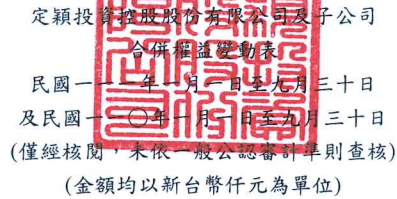 定穎投資控股股份有限公司及子公司
合併權益變動表
民國一一一年一月一日至九月三十日
及民國一一〇年一月一日至九月三十日
(僅經核閱，未依一般公認審計準則查核)
(金額均以新台幣仟元為單位)